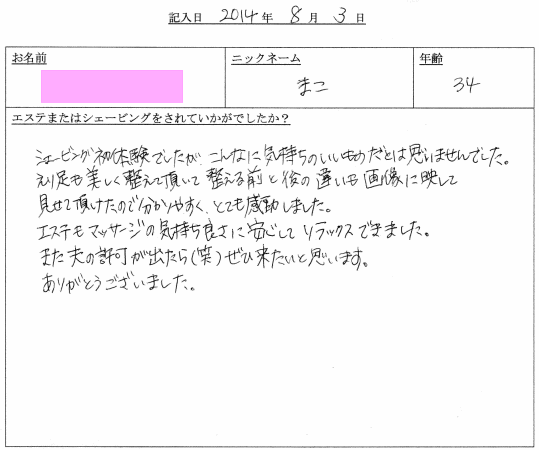 記入日 2014年 8月 3日
お名前 ニックネーム 年齢
まこ 34
エステまたはシェービングをされていかがでしたか？
シェービング初体験でしたが、こんなに気持ちのいいものだとは思いませんでした。
えり足も美しく整えて頂いて整える前と後の違いも画像に映して
見せて頂けたので分かりやすく、とても感動しました。
エステもマッサージの気持ち良さに安じてリラックスできました。
また夫の許可が出たら(笑)ぜひ来たいと思います。
ありがとうございました。